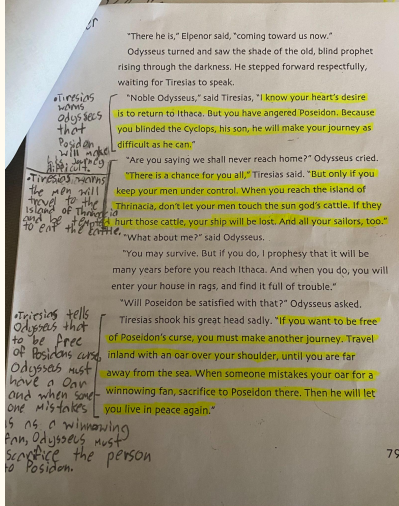 er
"There he is," Elpenor said, "coming toward us now."
Odysseus turned and saw the shade of the old, blind prophet
rising through the darkness. He stepped forward respectfully,
waiting for Tiresias to speak.
"Noble Odysseus," said Tiresias, "I know your heart's desire
is to return to Ithaca. But you have angered Poseidon. Because
you blinded the Cyclops, his son, he will make your journey as
difficult as he can."
"Are you saying we shall never reach home?" Odysseus cried.
"There is a chance for you all," Tiresias said. "But only if you
keep your men under control. When you reach the island of
Thrinacia, don't let your men touch the sun god's cattle. If they
hurt those cattle, your ship will be lost. And all your sailors, too."
"What about me?" said Odysseus.
"You may survive. But if you do, I prophesy that it will be
many years before you reach Ithaca. And when you do, you will
enter your house in rags, and find it full of trouble."
"Will Poseidon be satisfied with that?" Odysseus asked.
Tiresias shook his great head sadly. "If you want to be free
of Poseidon's curse, you must make another journey. Travel
inland with an oar over your shoulder, until you are far
away from the sea. When someone mistakes your oar for a
winnowing fan, sacrifice to Poseidon there. Then he will let
you live in peace again."
79
•Tiresias
warns
Odysses
that
Posidon
will make
his journey
difficult.
•Tiresias warns
the men will
travel to the
island of
and be tempted
to eat the cattle.
•Tiresias tells
Odysses that
to be free
of Posidons curse,
Odysseus must
have a Oar
and when some-
one mistakes
is as a winnowing
fan, Odysseus must
sacrifice the person
to Posidon.